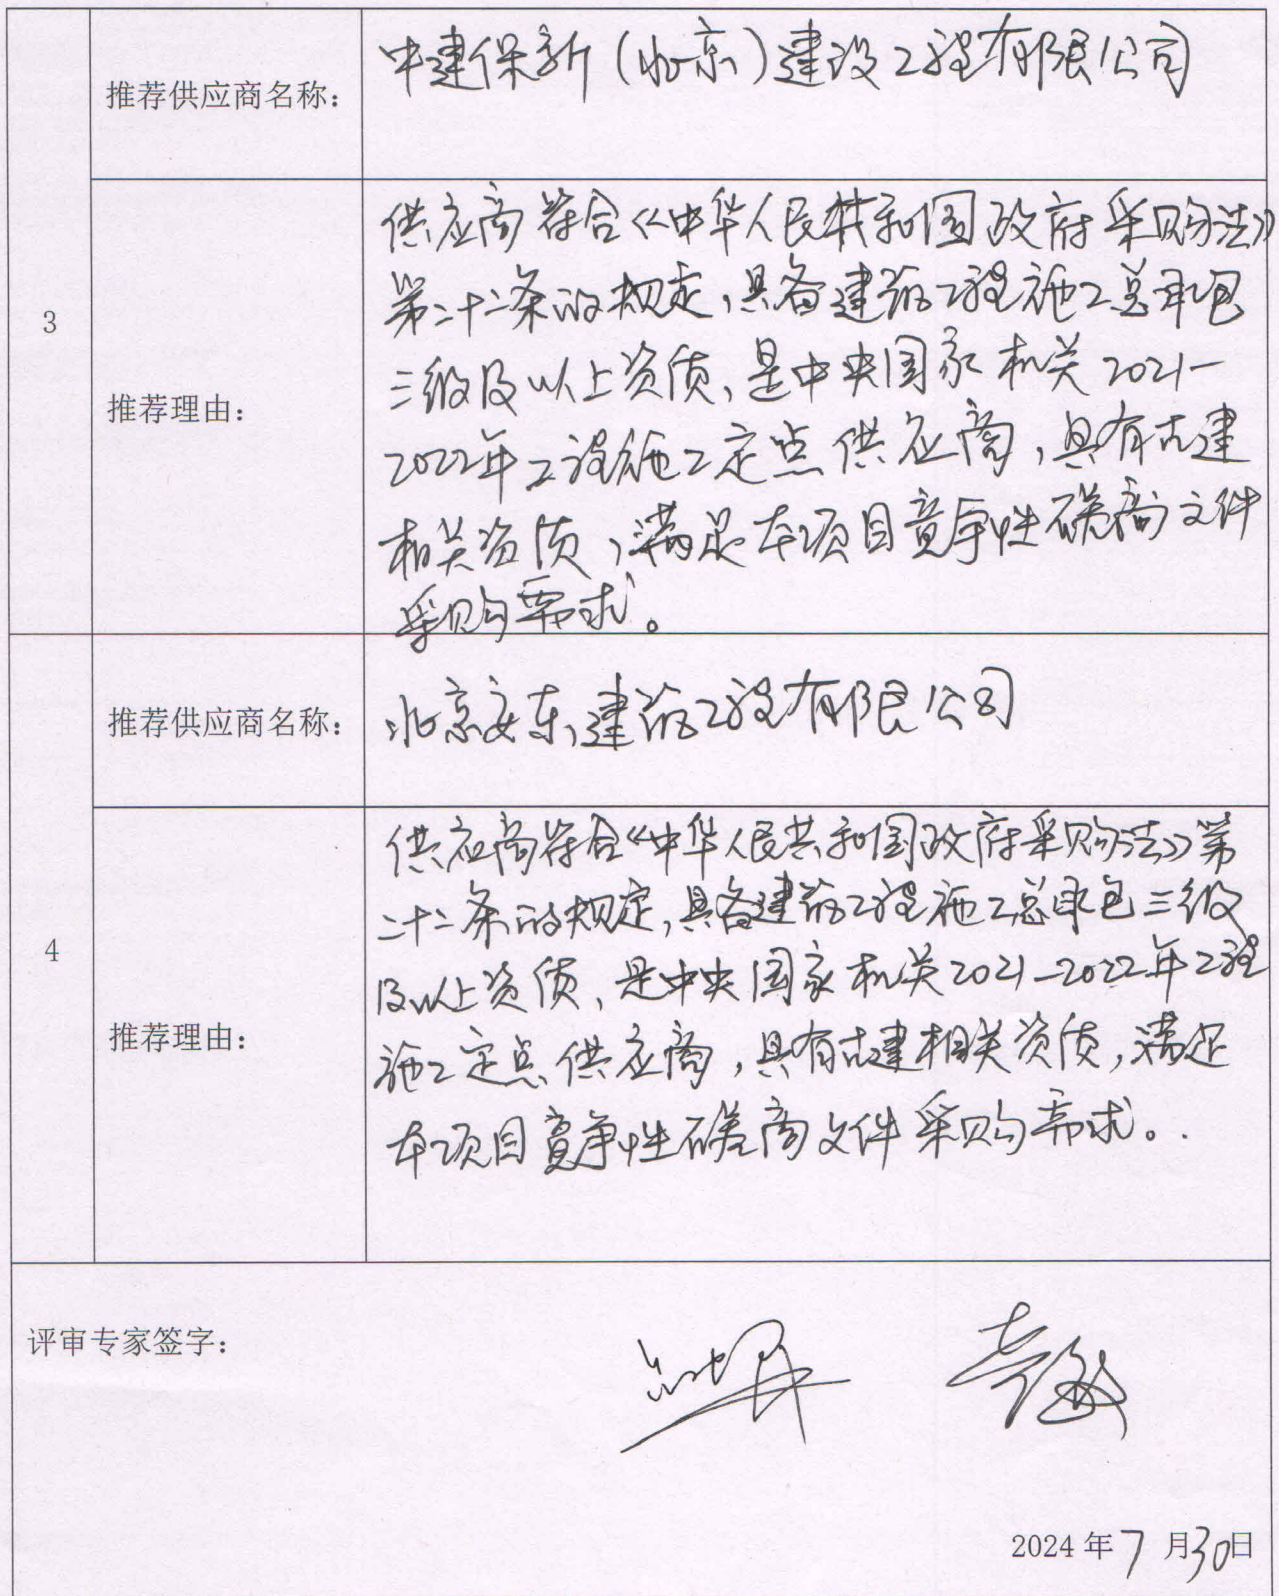 推荐供应商名称：
中建保新（北京）建设工程有限公司
3
推荐理由：
供应商符合《中华人民共和国政府采购法》
第二十二条的规定，具备建筑工程施工总承包
三级及以上资质、是中央国家机关2021-
2022年工程施工定点供应商，具有古建
相关资质，满足本项目竞争性磋商文件
采购需求。
推荐供应商名称：
北京安东建筑工程有限公司
4
推荐理由：
供应商符合《中华人民共和国政府采购法》第
二十二条的规定，具备建筑工程施工总承包三级
及以上资质、是中央国家机关2021-2022年工程
施工定点供应商，具有古建相关资质，满足
本项目竞争性磋商文件采购需求。
评审专家签字：
2024年7月30日